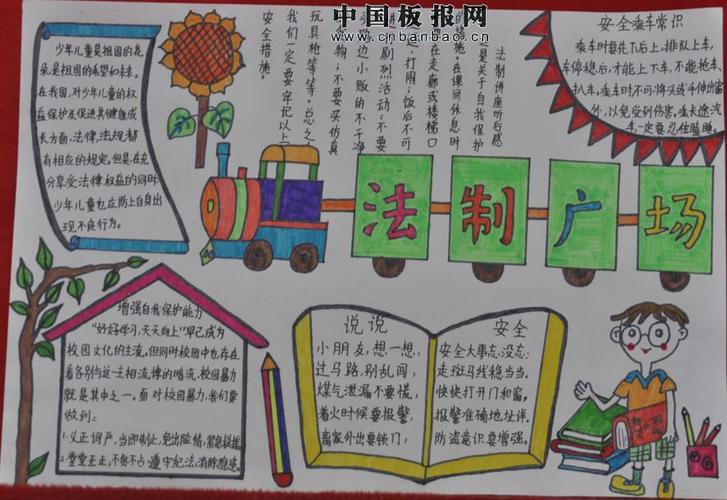 中国板报网
www.cnbanbao.cn
少年儿童是祖国的花
朵是祖国的希望和未来。
在我国,对少年儿童的权
益保护及促进其健康成
长方面,法律,法规都
有相应的规定。但是在充
分享受法律权益的同时
少年儿童也应防止自身出
现不良行为。
法制讲座听后感
是关于自我保护
的措施。在课间休息时
在走廊或楼梯口
打闹;饭后不可
进剧烈活动;不要
边小贩的不干净
食物;不要买仿真
玩具枪等等。总之
我们一定要牢记以上
安全措施。
安全乘车常识
乘车时要先下后上,排队上车,
车停稳后,才能上下车,不能抢车、
扒车。乘车时不可将头或手伸出窗
外,以免受到伤害。坐长途汽
车一定要忍住瞌睡。
法制广场
增强自我保护能力
“好好学习,天天向上”早已成为
校园文化的主流。但同时校园中也存在
着各别与这一主相流悖的暗流,校园暴力
就是其中之一。面对校园暴力,我们要
做到:
1.义正词严,当即制止,免出险情,紧急救援
2.堂堂正正,不贪不占,遵守纪法,消除隐患。
说说
小朋友,想一想,
过马路,别乱闯,
煤气泄漏不要慌,
着火时候要报警,
离家外出要锁门,
安全
安全大事忘没忘:
走斑马线稳当当。
快快打开门和窗。
报警准确地址详。
防盗意识要增强。